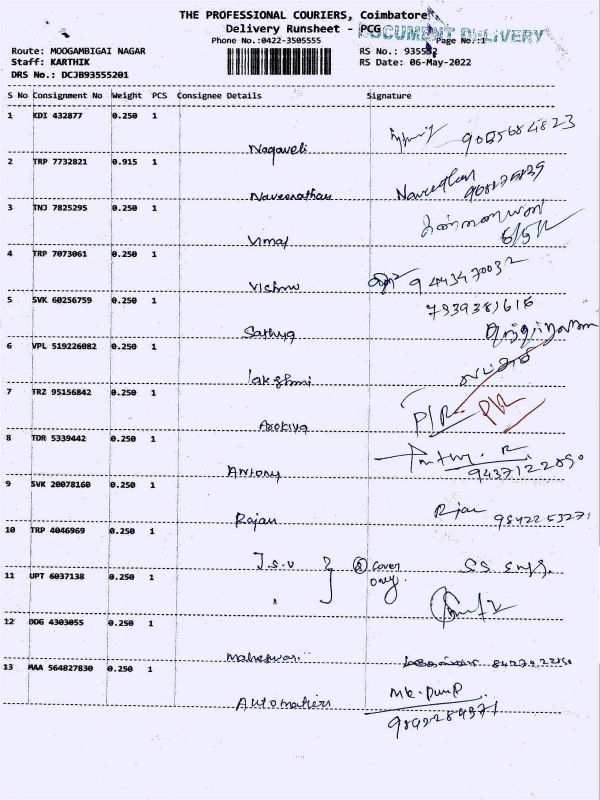 THE PROFESSIONAL COURIERS, Coimbatore
Delivery Runsheet - PCG
DOCUMENT DELIVERY
Phone No.:0422-3505555 Page No.:1
Route: MOOGAMBIGAI NAGAR RS No.: 935552
Staff: KARTHIK RS Date: 06-May-2022
DRS No.: DCJB93555201
S No Consignment No Weight PCS Consignee Details Signature
1 KDI 432877 0.250 1
Nagaveli 9085684823
2 TRP 7732821 0.915 1
Naveenathan Naveethan
3 TNJ 7825295 0.250 1
Vimal 6/5/22
4 TRP 7073061 0.250 1
Vishnu 9443470032
5 SVK 60256759 0.250 1 7939381616
Sathya
6 VPL 519226082 0.250 1
lakshmi
7 TRZ 95156842 0.250 1
P/R P/R
8 TDR 5339442 0.250 1
Antony 9437122890
9 SVK 20078160 0.250 1
Rajan Rjan 9842253271
10 TRP 4046969 0.250 1
J.S.V } ② Cover only.
11 UPT 6037138 0.250 1
12 DDG 4303055 0.250 1
maheswari
13 MAA 564827830 0.250 1
Mk. Pump
9892289371